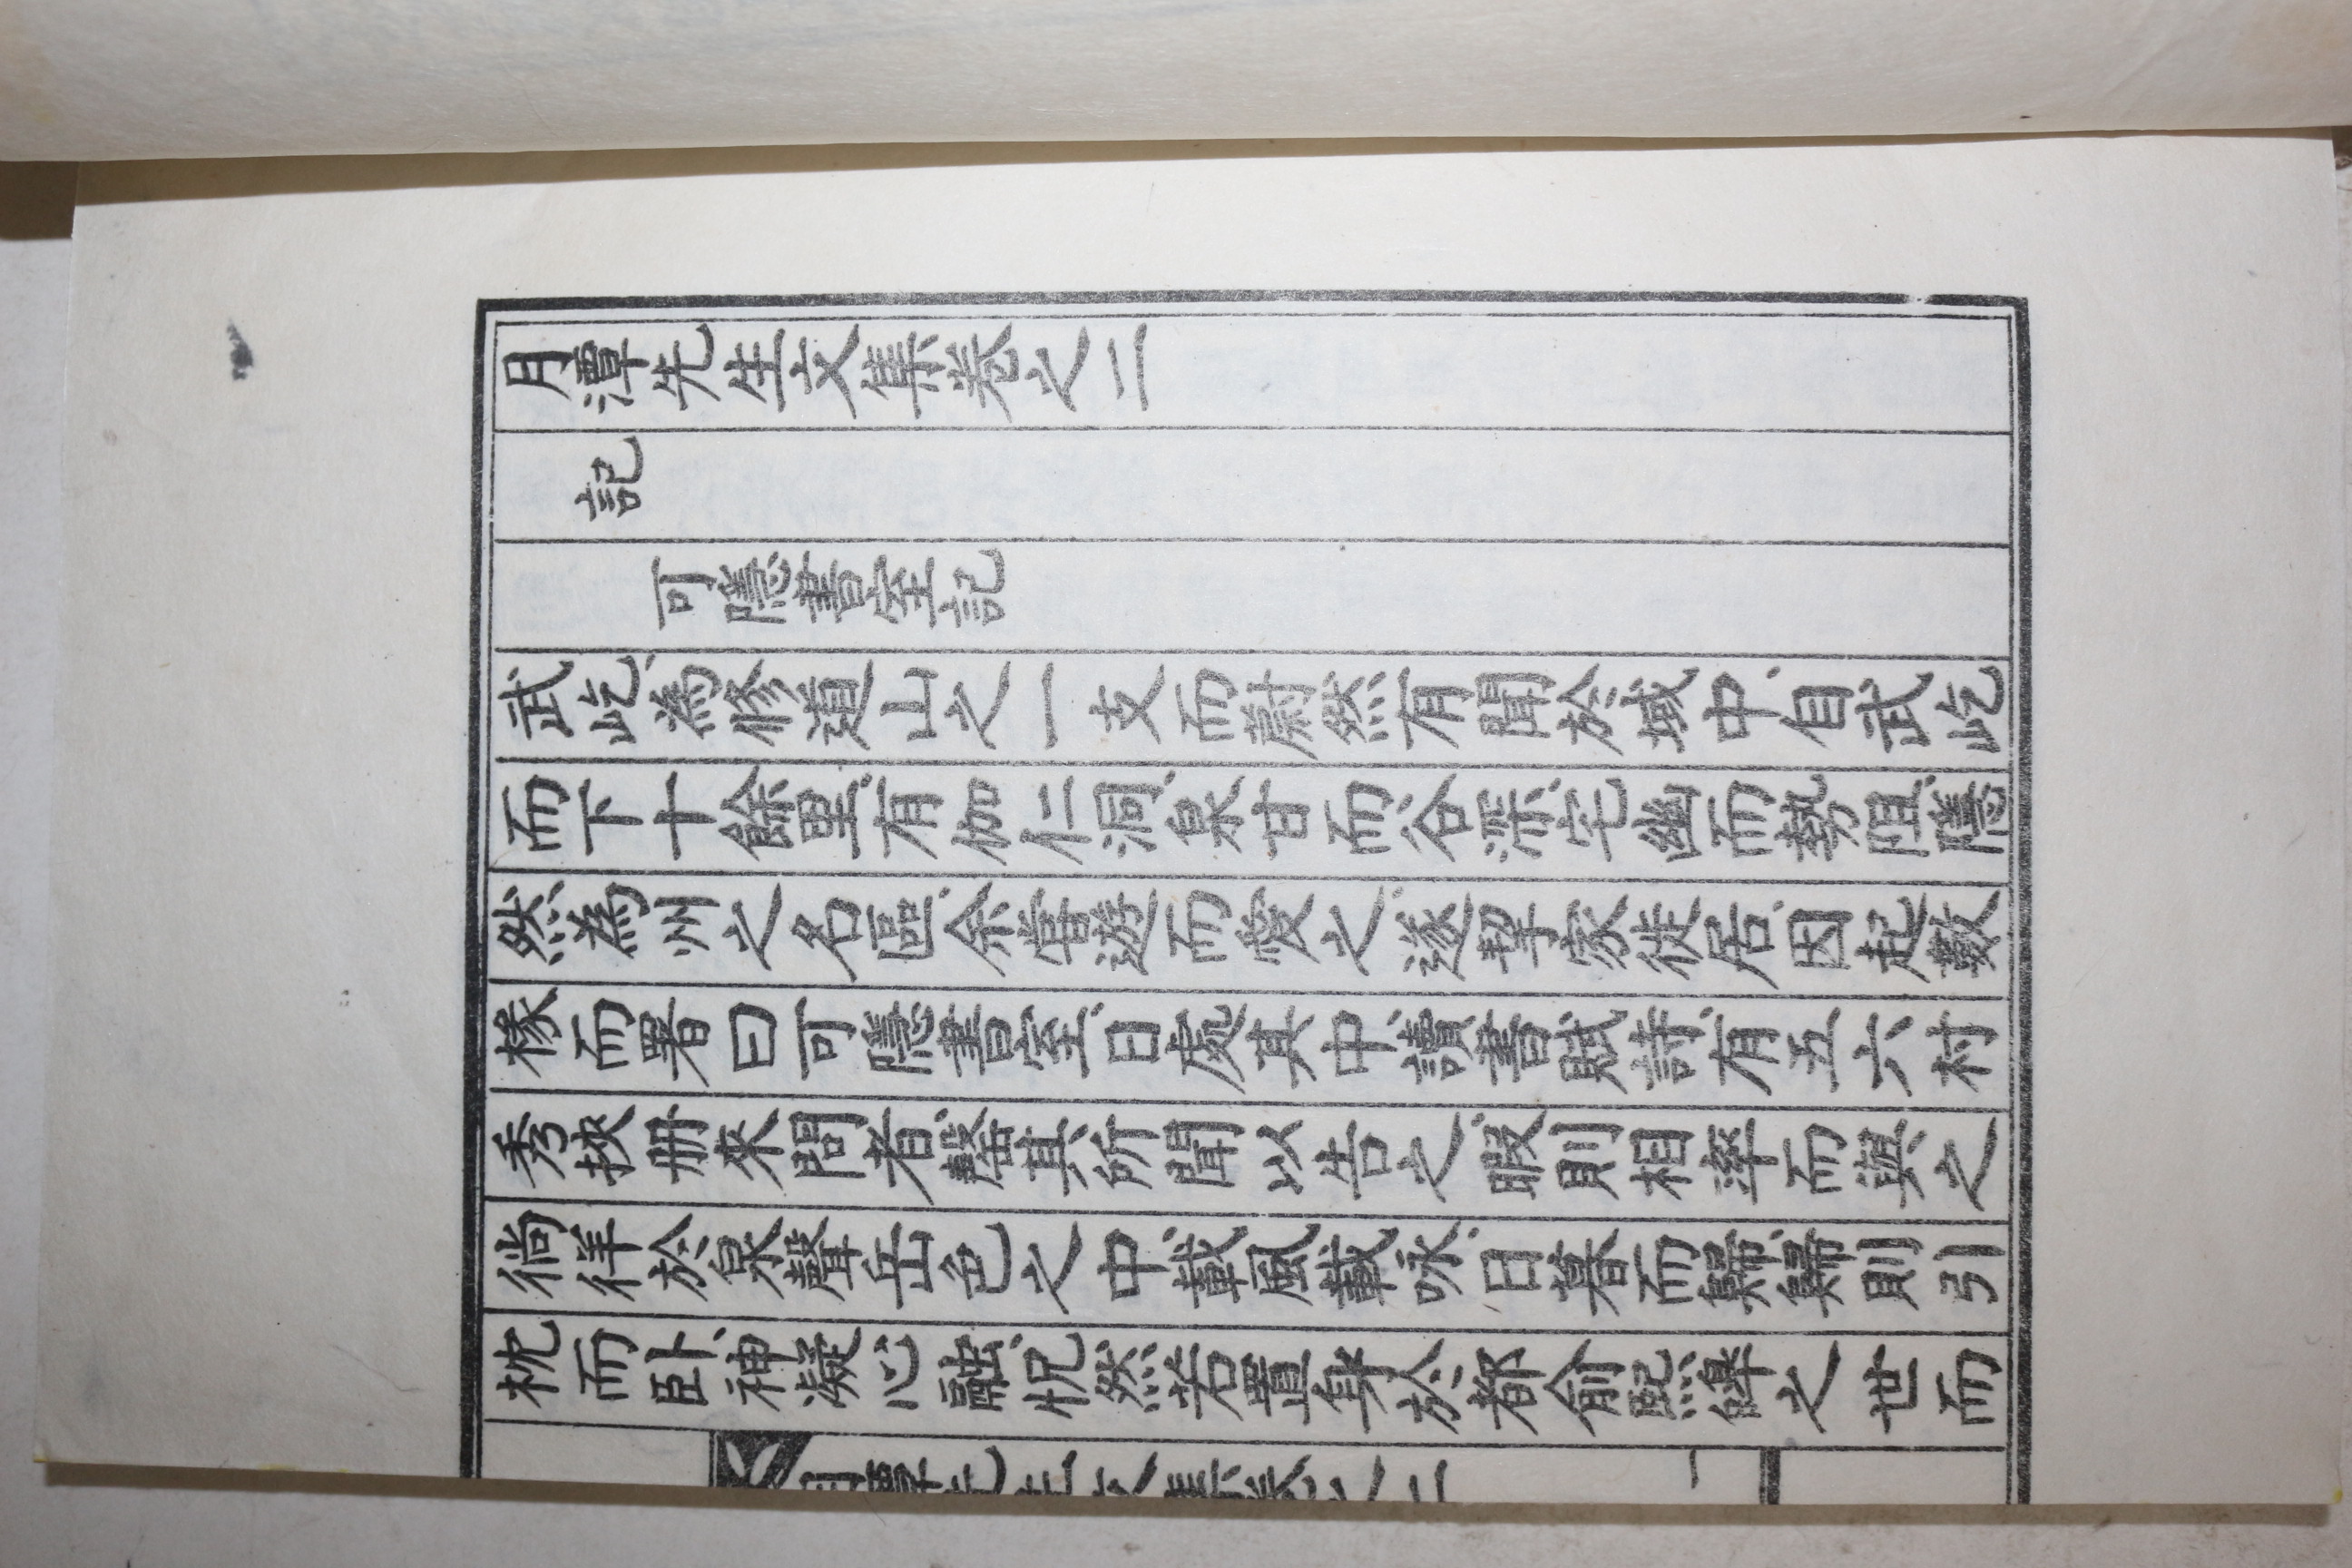 月潭先生文集卷之二
記
可隱書室記
武屹爲修道山之一支而蔚然有聞於域中自武屹
而下十餘里有伽仁洞泉甘而谷深宅幽而勢阻隱
然爲州之名區余嘗遊而愛之遂挈家徙居因起數
椽而署曰可隱書室日處其中讀書賦詩有五六村
秀挾册來問者罄其所聞以告之暇則相率而與之
徜徉於泉聲岳色之中載風載咏日暮而歸歸則引
枕而臥神凝心融怳然若置身於都俞熙皞之世而
月潭先生文集卷之二
一